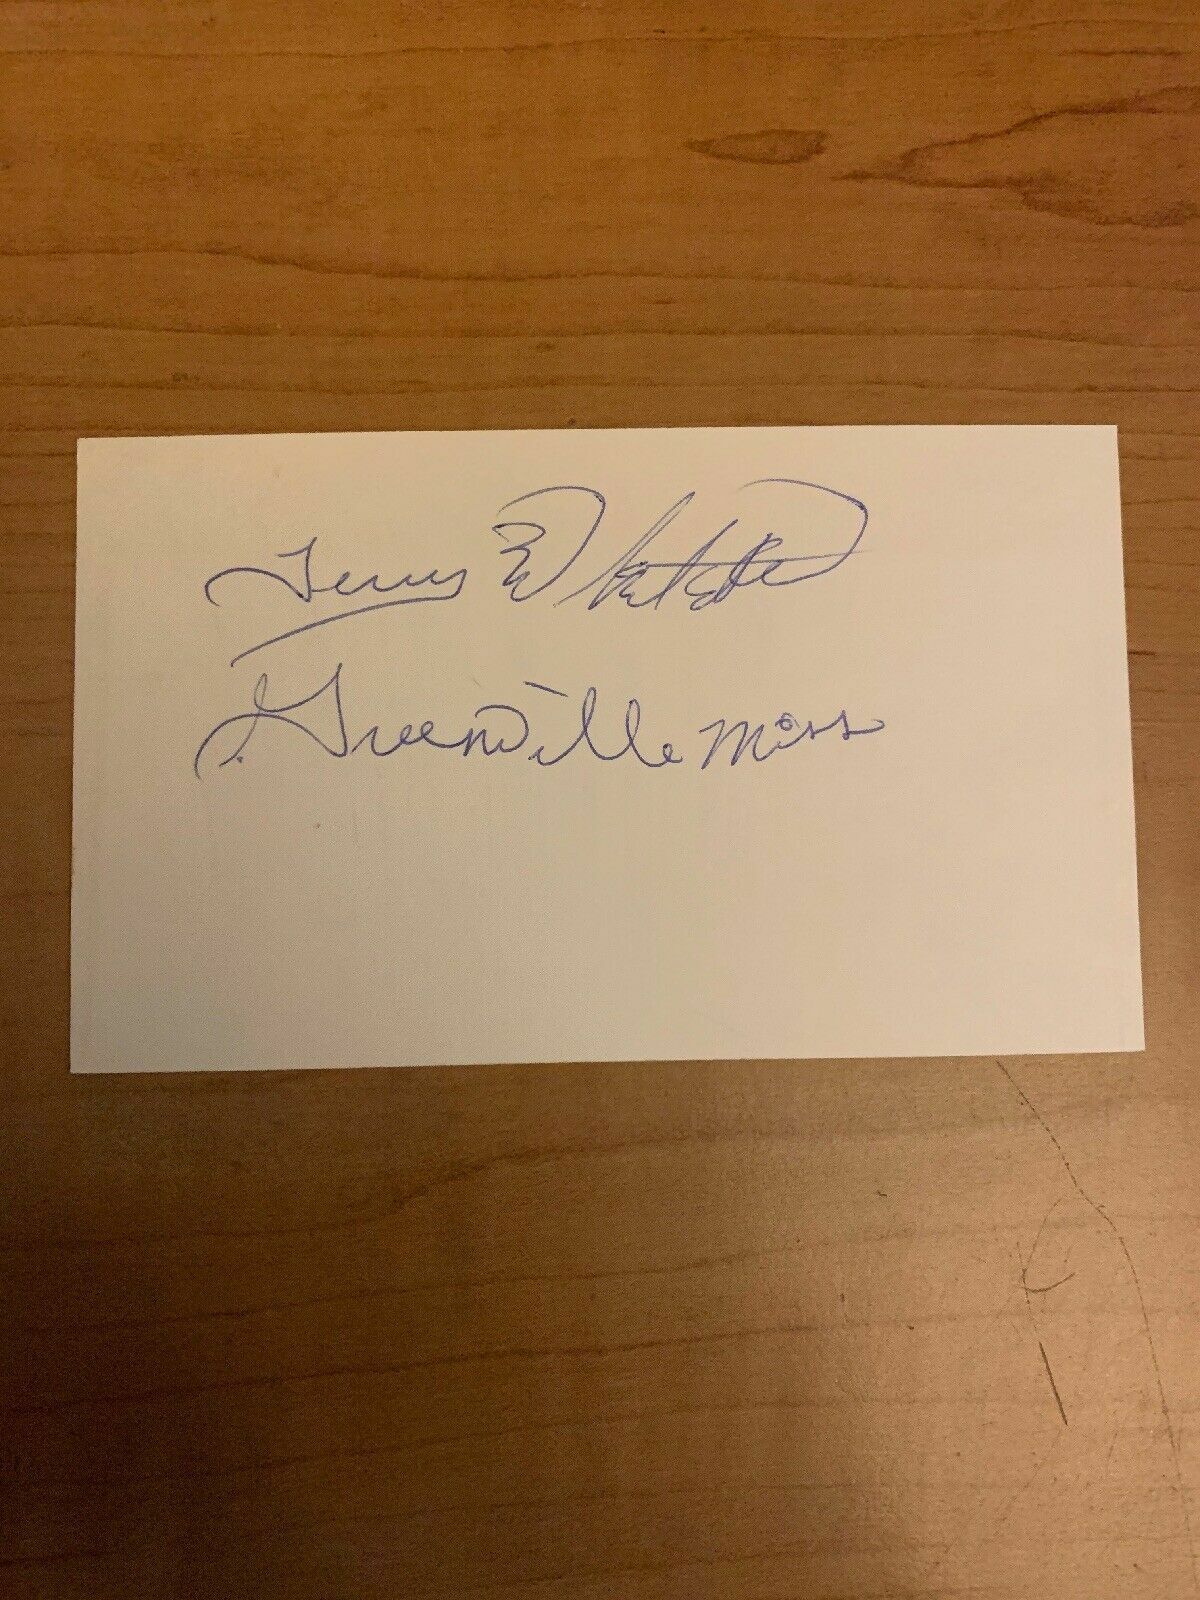 Terry
Greenville Miss